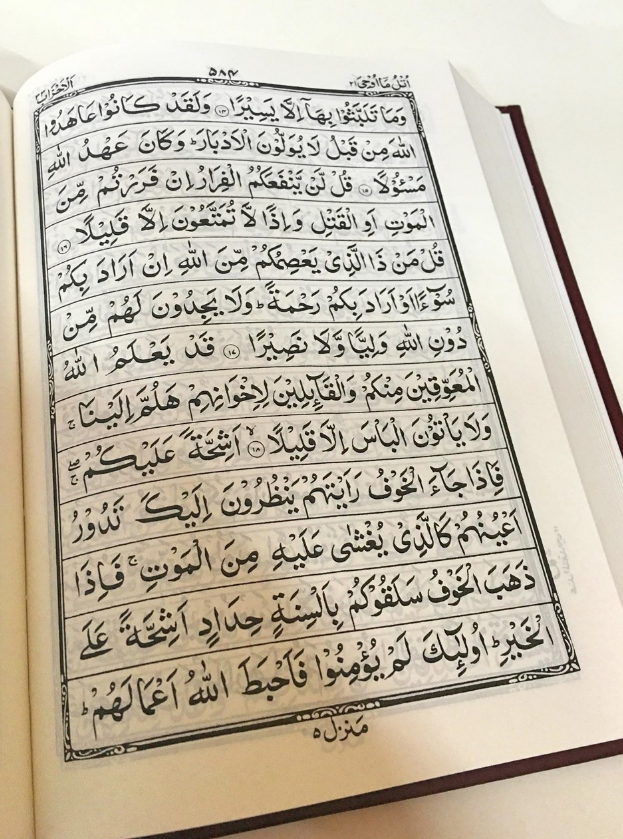 اتل ما اوحی ۲۱ ۵۸۴ الاحزاب ۳۳
وَمَا تَلَبَّثُوْا بِهَآ اِلَّا يَسِيْرًا ۝۱۴ وَلَقَدْ كَانُوْا عَاهَدُوا
اللّٰهَ مِنْ قَبْلُ لَا يُوَلُّوْنَ الْاَدْبَارَ ؕ وَكَانَ عَهْدُ اللّٰهِ
مَسْـُٔوْلًا ۝۱۵ قُلْ لَّنْ يَّنْفَعَكُمُ الْفِرَارُ اِنْ فَرَرْتُمْ مِّنَ
الْمَوْتِ اَوِ الْقَتْلِ وَاِذًا لَّا تُمَتَّعُوْنَ اِلَّا قَلِيْلًا ۝۱۶
قُلْ مَنْ ذَا الَّذِيْ يَعْصِمُكُمْ مِّنَ اللّٰهِ اِنْ اَرَادَ بِكُمْ
سُوْٓءًا اَوْ اَرَادَ بِكُمْ رَحْمَةً ؕ وَلَا يَجِدُوْنَ لَهُمْ مِّنْ
دُوْنِ اللّٰهِ وَلِيًّا وَّلَا نَصِيْرًا ۝۱۷ قَدْ يَعْلَمُ اللّٰهُ
الْمُعَوِّقِيْنَ مِنْكُمْ وَالْقَآئِلِيْنَ لِاِخْوَانِهِمْ هَلُمَّ اِلَيْنَا ۚ
وَلَا يَاْتُوْنَ الْبَاْسَ اِلَّا قَلِيْلًا ۝۱۸ اَشِحَّةً عَلَيْكُمْ ۖۚ
فَاِذَا جَآءَ الْخَوْفُ رَاَيْتَهُمْ يَنْظُرُوْنَ اِلَيْكَ تَدُوْرُ
اَعْيُنُهُمْ كَالَّذِيْ يُغْشٰى عَلَيْهِ مِنَ الْمَوْتِ ۚ فَاِذَا
ذَهَبَ الْخَوْفُ سَلَقُوْكُمْ بِاَلْسِنَةٍ حِدَادٍ اَشِحَّةً عَلَى
الْخَيْرِ ؕ اُولٰٓئِكَ لَمْ يُؤْمِنُوْا فَاَحْبَطَ اللّٰهُ اَعْمَالَهُمْ ؕ
منزل ۵